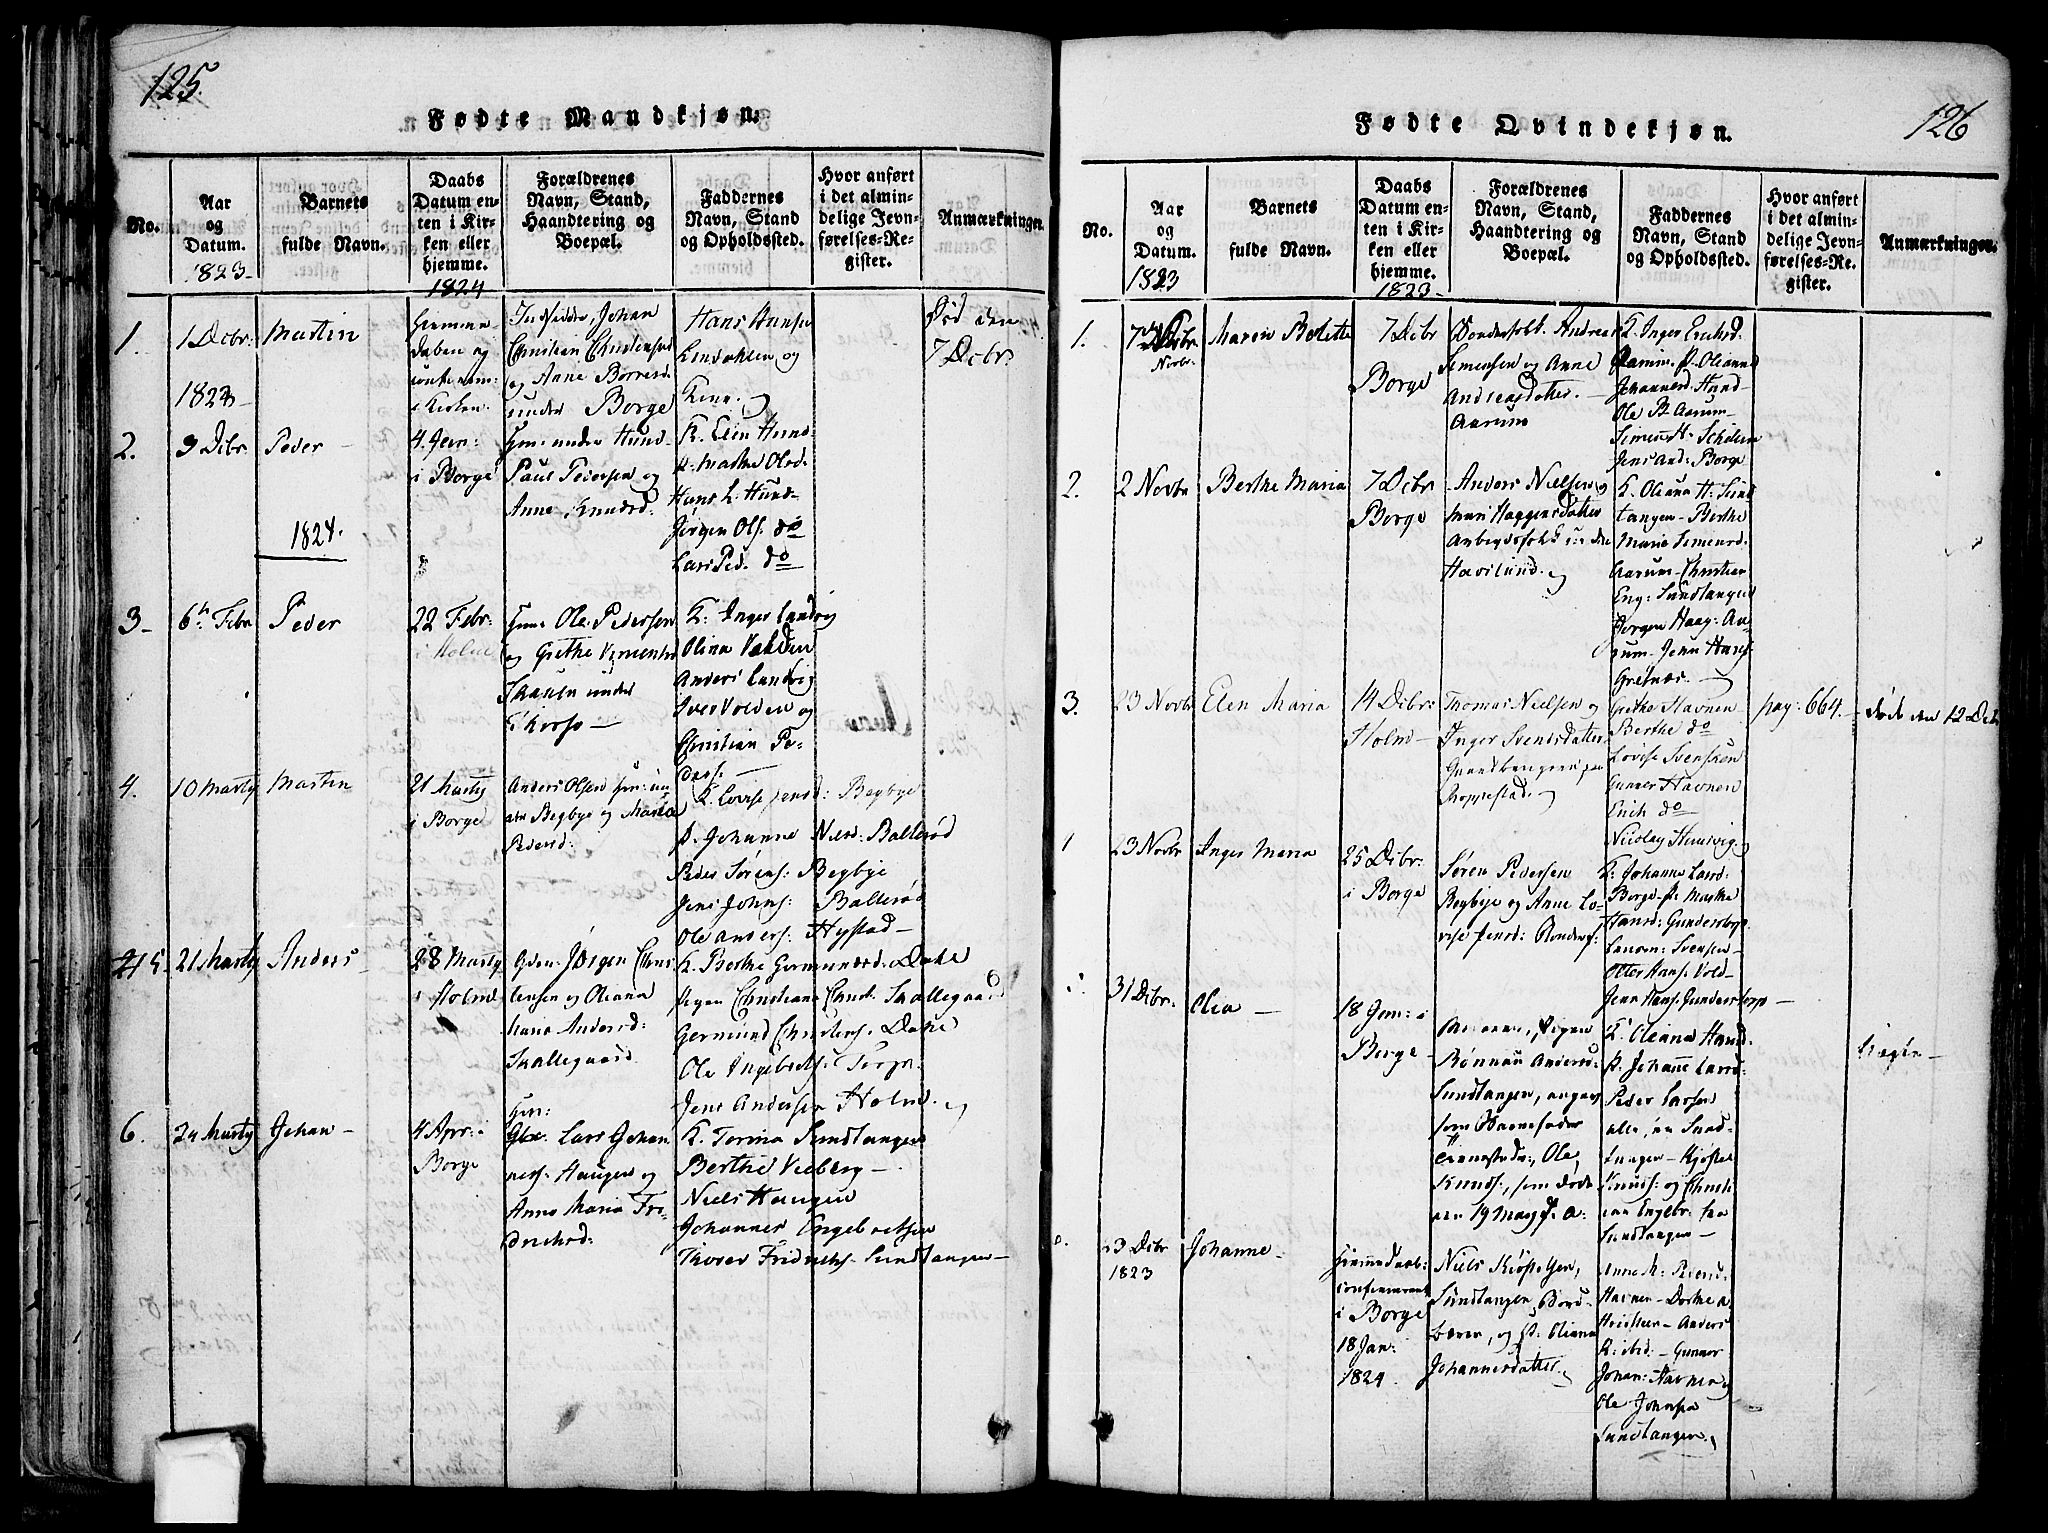 125.
Fødte Mandkjøn.
No.
Aar
og
Datum.
1823-
Barnets
fulde Navn.
Daabs
Datum en-
ten i Kir-
ken eller
hjemme.
1824
Forældrenes
Navn, Stand,
Haandtering og
Boepæl.
Faddernes
Navn, Stand
og Opholdssted.
Hvor anført
i det almin-
delige Jevn-
førelses-Re-
gister.
Anmærkninger.
1.
1 Decbr.
1823-
Martin
Hiemme-
døben og
i Kirken.
Johan
Christian Christensen
og Anne Borresd.
under Borge
Hans Hansen
og
Død den
7 Decbr.
2.
9 Dcbr
Peder -
4 Jan:
i Borge
Hm: under Hund-
Paul Pedersen og
Anne Knudsd:
K. Elen Hund-
P. Marthe Olsd.
Hans L. Hund-
Jørgen Ols. do
Lars Ped. do
1824.
3-
6te Febr
Peder
22 Febr:
i Holme
Hm: Ole Pedersen
og Grethe
under
Thorsø -
K: Inger Lundvig
Olina Volden
Anders Lundvig
Iver Volden og
Christian Pe-
ders: -
4.
10 Marty
Martin
21 Marty
i Borge
Anders Olsen Hm: un-
der Begbye og Maria
Pedersd:
K. Lovise Jensd: Begbye
P. Johanne Nilsd: Ballerød
Peder Sørens: Begbye
Jens Johns: Ballerød
Ole Anders: Hystad -
5-
21 Marty
Anders -
28 Marty
i Holme
Gdm: Jørgen Chris
tensen og Oleana
Maria Andersd:
Skallegaard
K. Berthe Germundsd: Dahle
Pigen Christiane Christ: Skallegaard
Germund Christens: Dahle
Ole Ingebrets: Torp.
Jens Andersen Holme. og
6.
24 Marty
Johan -
4 Apr: i
Borge
Hm:
Lars Johan
ness: Haugen og
Anne Maria Fri
drichsd:
K. Torina Sundtangen
Berthe Vieberg -
Niels Haugen
Johannes Engebretsen
Thorer Fridrichs. Sundtangen -
126
Fødte Qvindekjøn.
No.
Aar
og
Datum.
1823
Barnets
fulde Navn.
Daabs
Datum en-
ten i Kir-
ken eller
hjemme.
1823-
Forældrenes
Navn, Stand,
Haandtering og
Boepæl.
Faddernes
Navn, Stand
og Opholdssted.
Hvor anført
i det almin-
delige Jevn-
førelses-Re-
gister.
Anmærkninger.
1.
7
Novbr.
Maren Bolette
7 Dcbr
Borge
Bondefolk. Andreas
Simensen og Anne
Andreasdatter. -
Aarum
K. Inger Erichsd.
Aarum. P. Oleanna
Johannesd. Hund-
Ole P. Aarum-
Simen H.
Jens And: Borge
2.
2 Novbr
Berthe Maria
7 Dcbr
Borge
Anders Nielsen og
Mari Haagensdatter
Arbeydsfolk under
Havslund. og
K. Oleana H: Sund
tangen - Berthe
Maria Simensd.
Aarum - Christian
Eng: Sundtangen
Jørgen Haag: Aa-
rum - Jens Hans:
Gresnær. -
3.
23 Novbr
Elen Maria
14 Dcbr:
Holme -
Thomas Nielsen og
Inger Svensdatter
Roppestad. og
Grethe Havnen
Berthe do
Lovise Svensken
Gunner Havnen
Erich do
Nicolay
pag: 664. -
døde den 12 Decbr
23 Novbr
Inger Maria
25 Dcbr:
i Borge
Søren Pedersen
Begbye og Anne Lo-
vise Jensd:
K: Johanne Larsd:
Borge - P. Marthe
Hansd: Gunderstorp
Svensen -
Otter Hans: Vold -
Jens Hans: Gunderstorp -
31 Dcbr:
Olea -
18 Jan: i
Borge -
Pigen
Rønnau Andersd:
Sundtangen, angav
som Barnefader
Ole
Knuds:, som døde
den 19 May f. A:
K: Oleana Hansd:
P. Johanne Larsd:
Peder Larsen
alle fra Sund-
tangen - Kjøstel
Knuds: og Christi
an Engebr: fra
Sundtangen -
23 Dcbr
1823
Johanne -
Hiemmedøbt:
confirmeret
i Borge
18 Jan:
1824.
Niels Kiøstelsen,
Sundtangen, Bord-
bærer, og P: Oleana
Johannesdatter. og
Anne M: Pedersd:
Havnen - Dorthe A
- Anders
- Gunner
Johan: Havnen og
Ole Johnsen
Sundtangen.